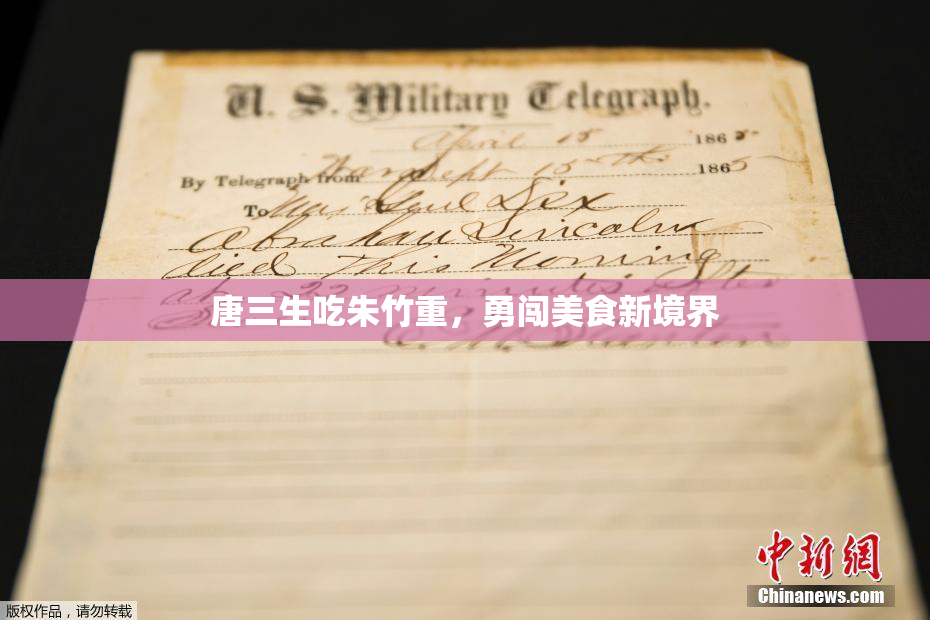 U. S. Military Telegraph.
April 15 1865
By Telegraph from War Dept 15th 1865
To Maj Genl Dix
Abraham Lincoln
died This Morning
at 22 minutes after
唐三生吃朱竹重，勇闯美食新境界
E. M. Stanton
中新網
Chinanews.com
版权作品，请勿转载